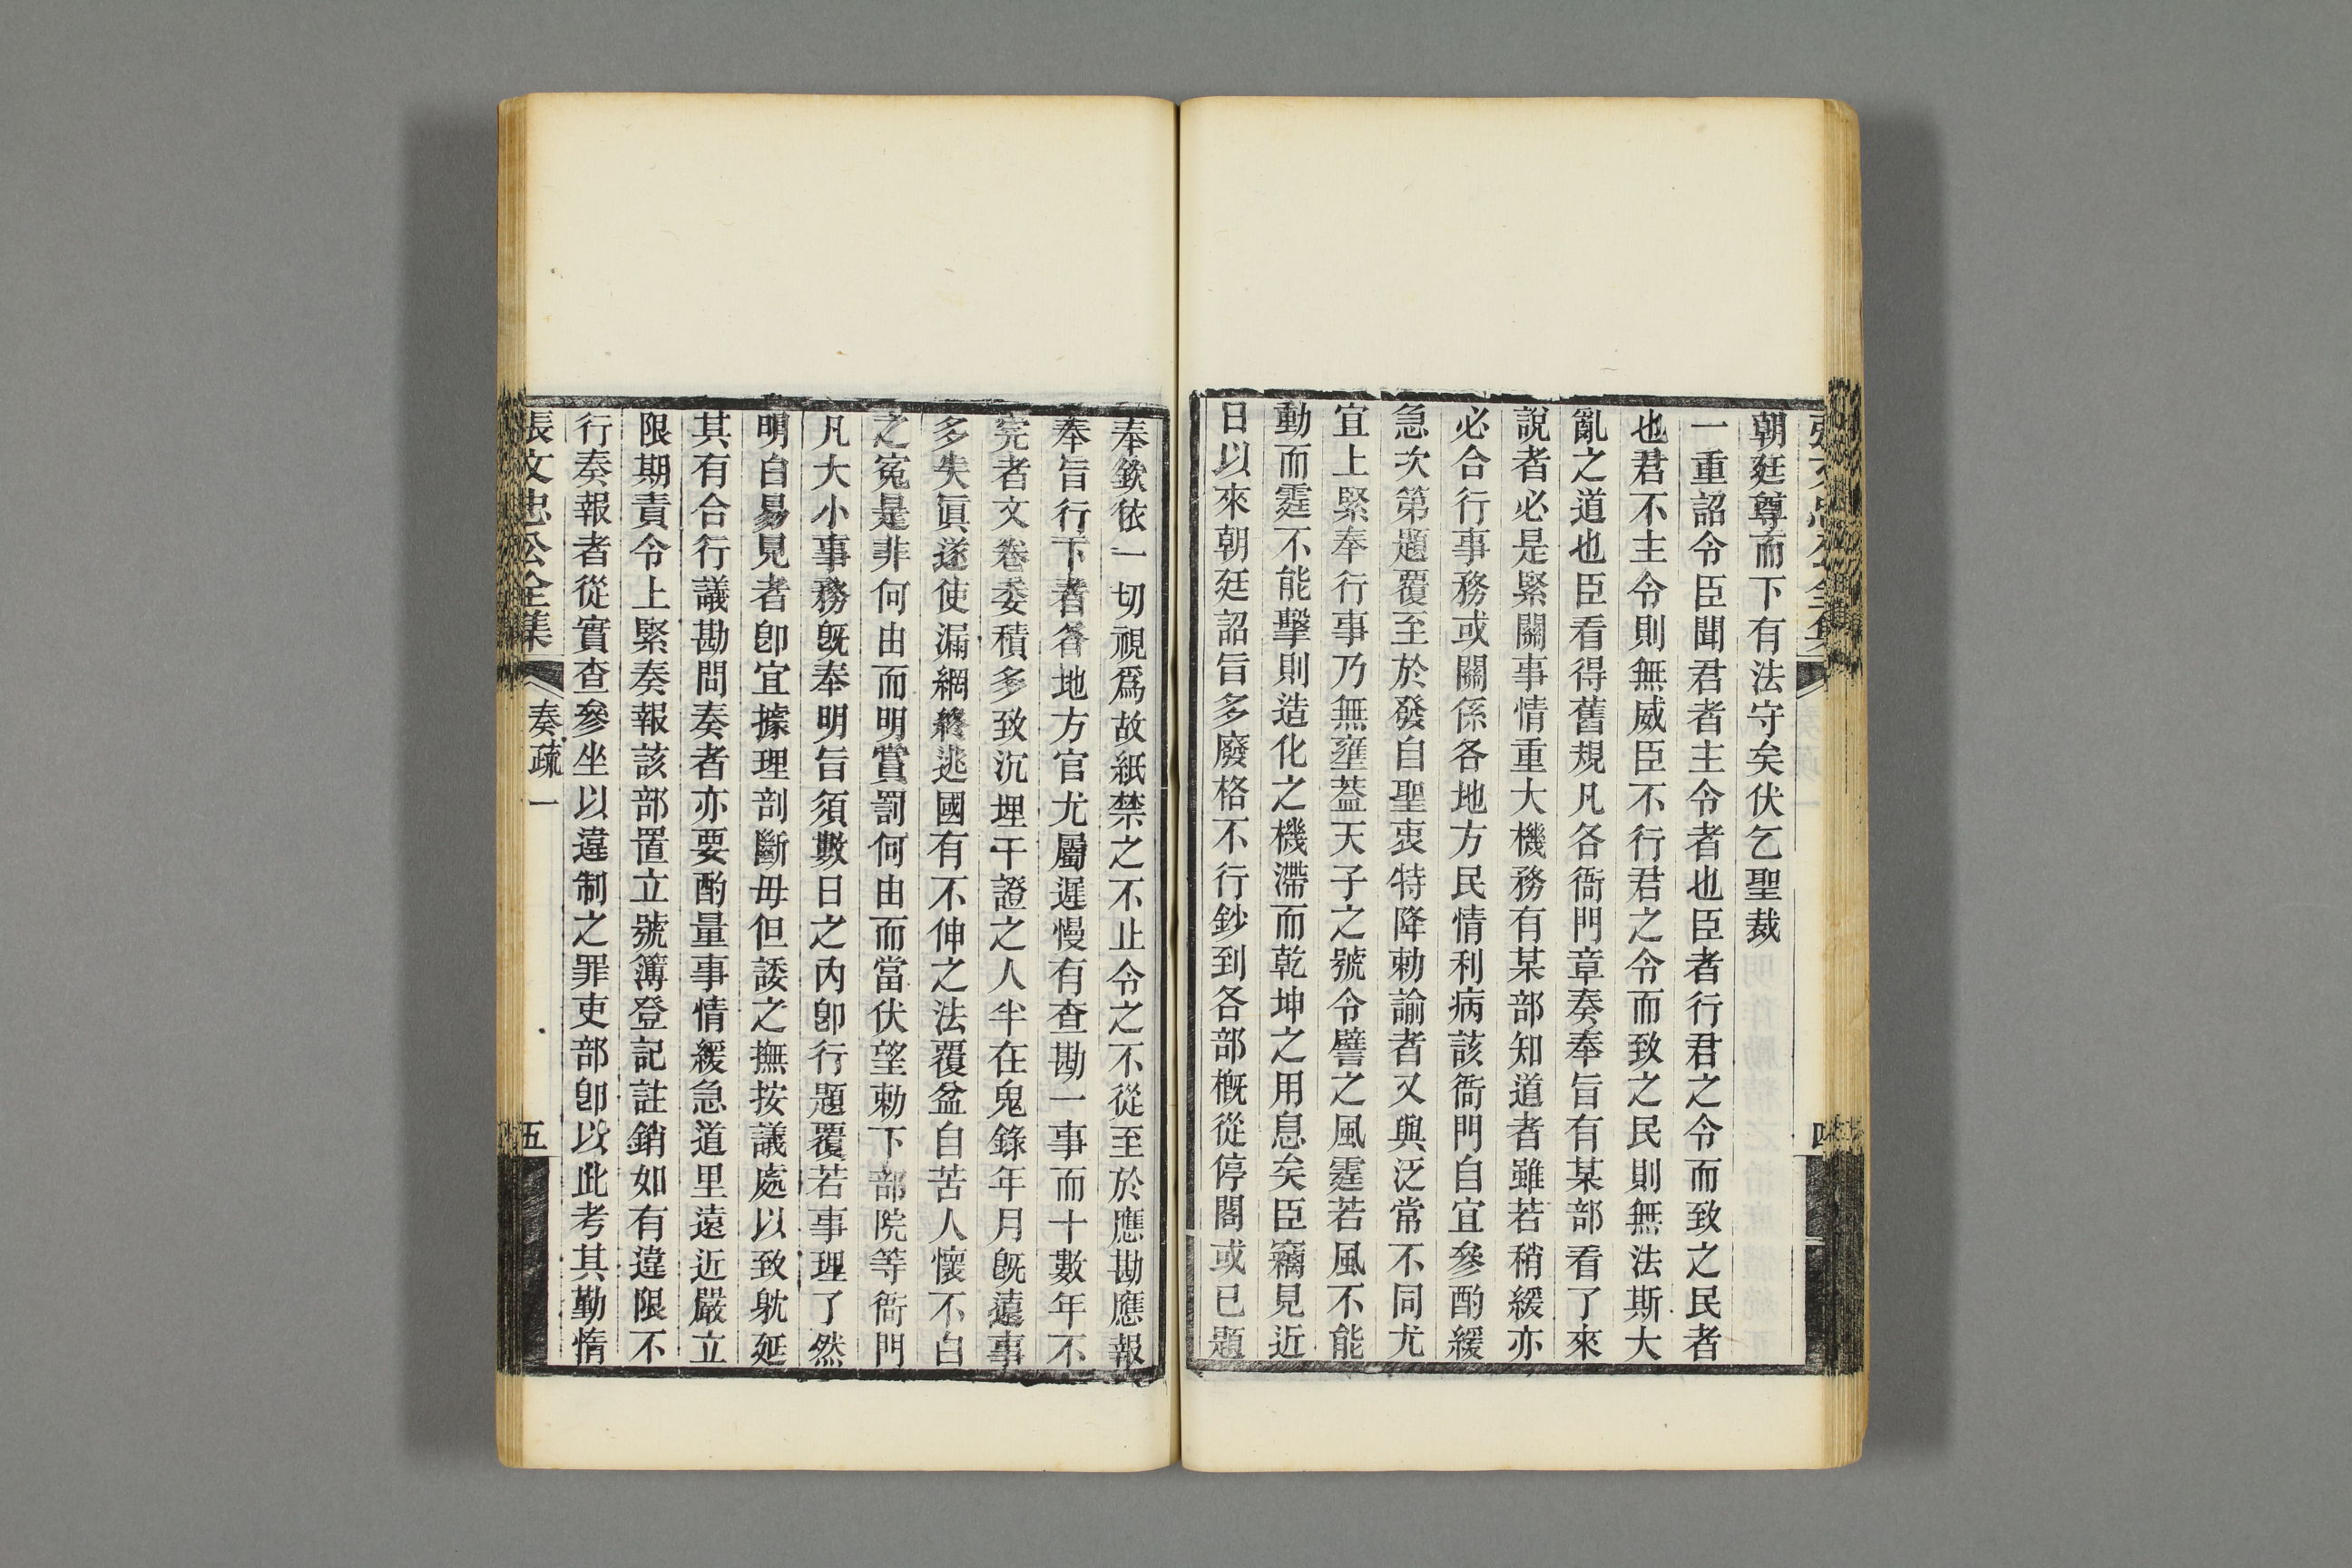 朝廷尊而下有法守矣伏乞聖裁
一重詔令臣聞君者主令者也臣者行君之令而致之民者
也君不主令則無威臣不行君之令而致之民則無法斯大
亂之道也臣看得舊規凡各衙門章奏奉旨有某部看了來
說者必是緊關事情重大機務有某部知道者雖若稍緩亦
必合行事務或關係各地方民情利病該衙門自宜參酌緩
急次第題覆至於發自聖衷特降勅諭者又與泛常不同尤
宜上緊奉行事乃無壅蓋天子之號令譬之風霆若風不能
動而霆不能擊則造化之機滯而乾坤之用息矣臣竊見近
日以來朝廷詔旨多廢格不行鈔到各部概從停閣或已題
奉欽依一切視爲故紙禁之不止令之不從至於應勘應報
奉旨行下者各地方官尤屬遲慢有查勘一事而十數年不
完者文卷委積多致沉埋干證之人半在鬼錄年月既遠事
多失眞遂使漏網終逃國有不伸之法覆盆自苦人懷不白
之寃是非何由而明賞罰何由而當伏望勅下部院等衙門
凡大小事務既奉明旨須數日之內卽行題覆若事理了然
明白易見者卽宜據理剖斷毋但諉之撫按議處以致躭延
其有合行議勘問奏者亦要酌量事情緩急道里遠近嚴立
限期責令上緊奏報該部置立號簿登記註銷如有違限不
行奏報者從實查參坐以違制之罪吏部卽以此考其勤惰
張文忠公全集 奏疏一 五